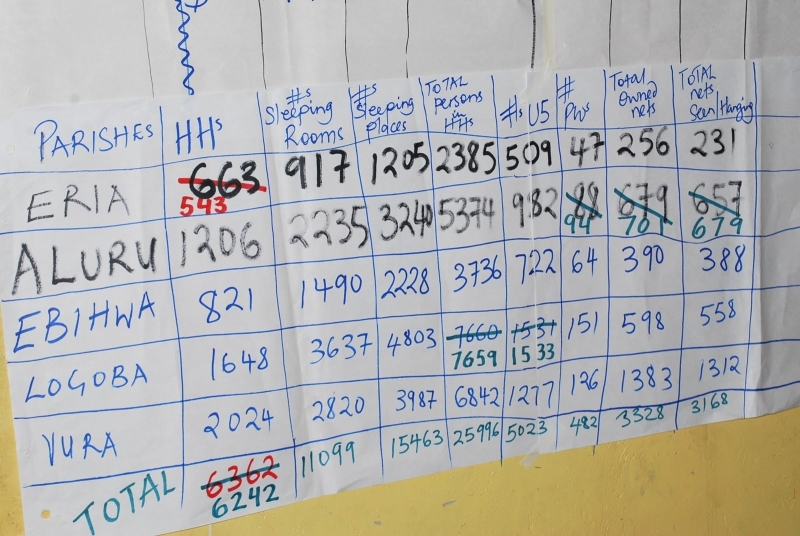 PARISHES HHs #s Sleeping Rooms #s Sleeping Places TOTAL Persons in HHs #s U5 # PWs Total Owned nets TOTAL nets Seen/Hanging
ERIA 663 543 917 1205 2385 509 47 256 231
ALURU 1206 2235 3240 5374 982 88 94 679 701 657 679
EBIHWA 821 1490 2228 3736 722 64 390 388
LOGOBA 1648 3637 4803 7660 7659 1531 1533 151 598 558
VURA 2024 2820 3987 6842 1277 126 1383 1312
TOTAL 6362 6242 11099 15463 25996 5023 482 3328 3168